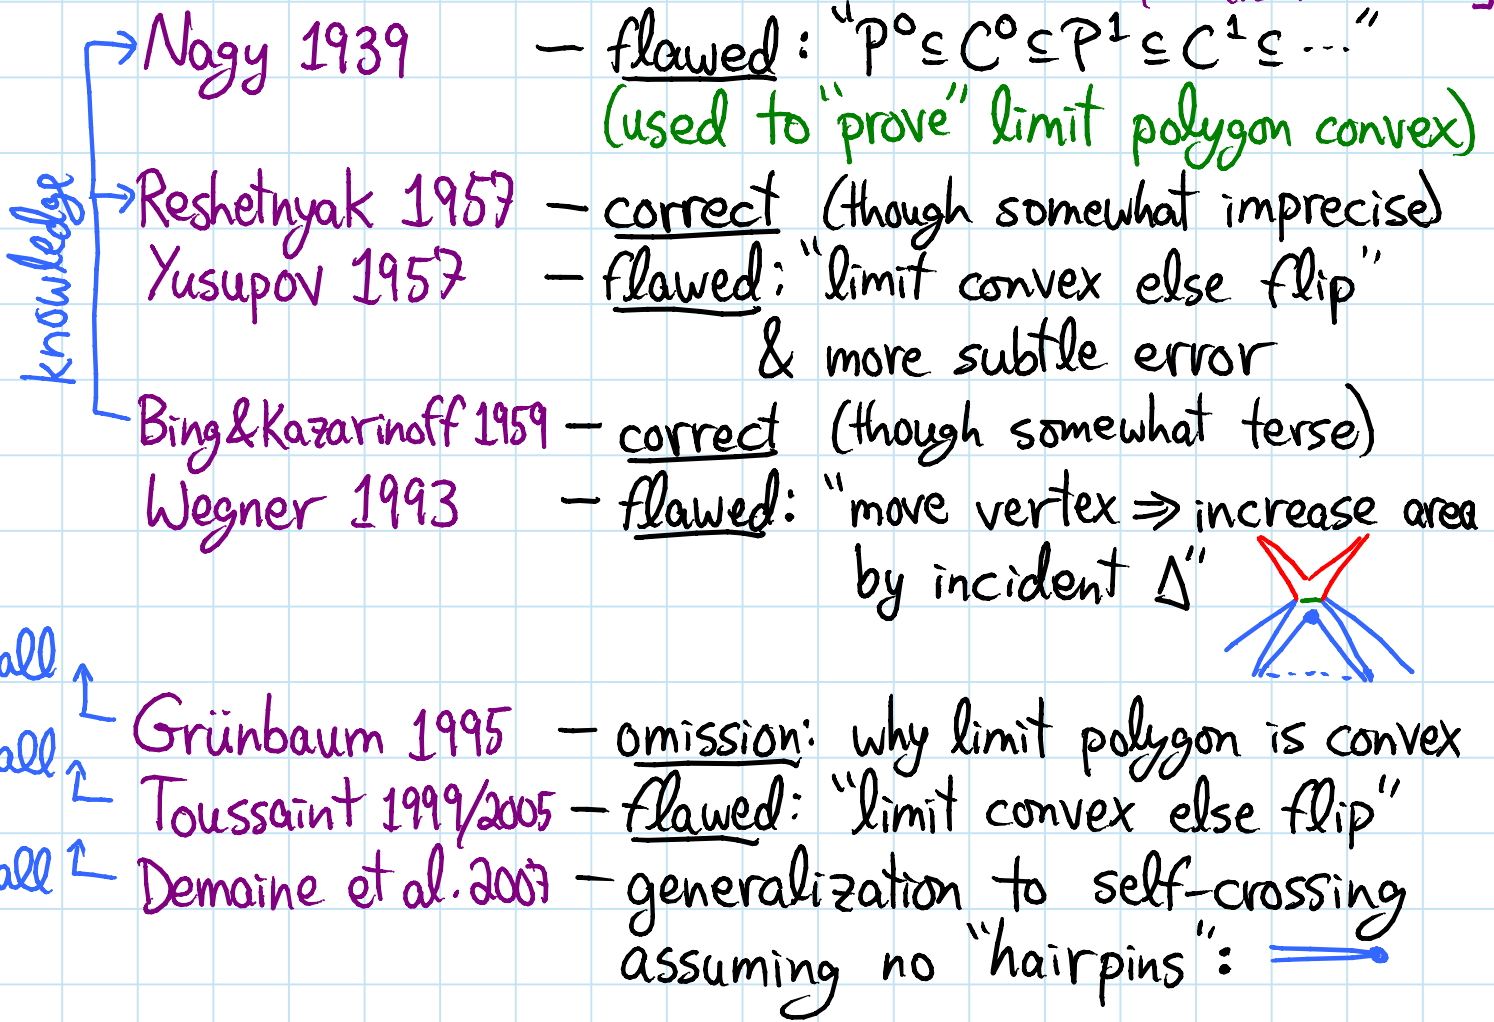 Nagy 1939 — flawed: "P⁰ ⊆ C⁰ ⊆ P¹ ⊆ C¹ ⊆ ..."
(used to "prove" limit polygon convex)
knowledge
Reshetnyak 1957 — correct (though somewhat imprecise)
Yusupov 1957 — flawed: "limit convex else flip"
& more subtle error
Bing&Kazarinoff 1959 — correct (though somewhat terse)
Wegner 1993 — flawed: "move vertex ⇒ increase area
by incident Δ"
all
Grünbaum 1995 — omission: why limit polygon is convex
all
Toussaint 1999/2005 — flawed: "limit convex else flip"
all
Demaine et al. 2007 — generalization to self-crossing
assuming no "hairpins":